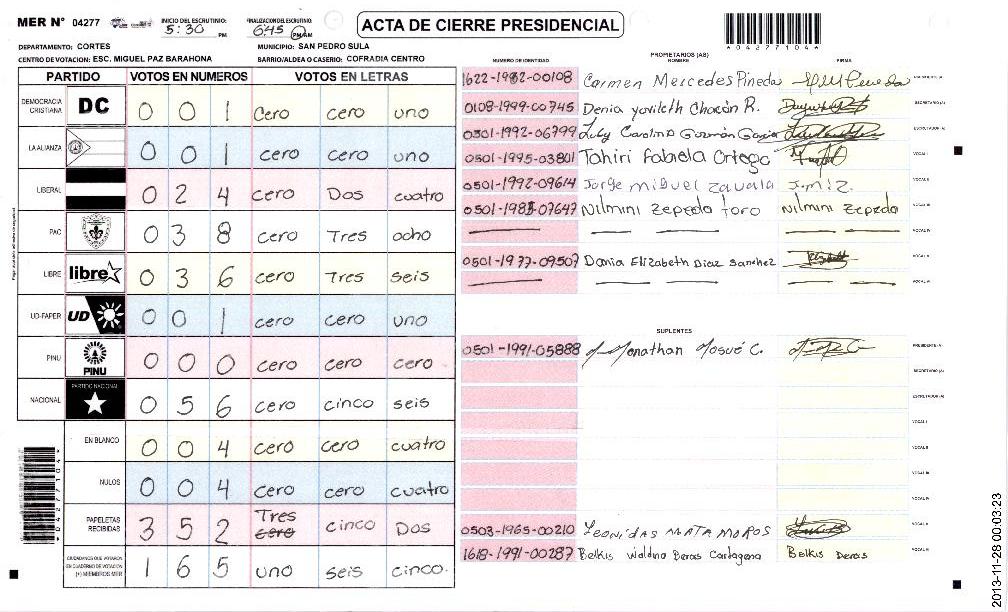 MER N° 04277
INICIO DEL ESCRUTINIO: 5:30 PM
FINALIZACION DEL ESCRUTINIO: 6:45 PM/AM
ACTA DE CIERRE PRESIDENCIAL
*04277104*
DEPARTAMENTO: CORTES
MUNICIPIO: SAN PEDRO SULA
CENTRO DE VOTACION: ESC. MIGUEL PAZ BARAHONA
BARRIO/ALDEA O CASERIO: COFRADIA CENTRO
PARTIDO VOTOS EN NUMEROS VOTOS EN LETRAS
DEMOCRACIA CRISTIANA DC 0 0 1 Cero cero uno
LA ALIANZA 0 0 1 cero cero uno
LIBERAL 0 2 4 cero Dos cuatro
PAC 0 3 8 cero Tres ocho
LIBRE libre 0 3 6 cero Tres seis
UD-FAPER UD 0 0 1 cero cero uno
PINU PINU 0 0 0 cero cero cero
NACIONAL PARTIDO NACIONAL 0 5 6 cero cinco seis
EN BLANCO 0 0 4 cero cero cuatro
NULOS 0 0 4 cero cero cuatro
PAPELETAS RECIBIDAS 3 5 2 Tres cero cinco Dos
CIUDADANOS QUE VOTARON EN CUADERNO DE VOTACION (+) MIEMBROS MER 1 6 5 uno seis cinco.
*04277104*
PROPIETARIOS (AS)
NUMERO DE IDENTIDAD NOMBRE FIRMA
1622-1982-00108 Carmen Mercedes Pineda PRESIDENTE (A)
0108-1999-00745 Denia yavileth Chacón R. SECRETARIO (A)
0501-1992-06799 Carolina Guzmán García ESCRUTADOR (A)
0501-1995-03801 Tahiri Fabiela Ortega VOCAL I
0501-1992-09614 Jorge miguel zavala J.m.Z. VOCAL II
0501-1983-07647 Nilmini Zepeda Toro Nilmini Zepeda VOCAL III
VOCAL IV
0501-1977-09507 Dania Elizabeth Diaz Sanchez VOCAL V
VOCAL VI
SUPLENTES
0501-1991-05888 Jonathan Josué C. PRESIDENTE (A)
SECRETARIO (A)
ESCRUTADOR (A)
VOCAL I
VOCAL II
VOCAL III
VOCAL IV
0503-1965-00210 Leonidas MATAMOROS VOCAL V
1618-1991-00287 Belkis Deras Cartagena Belkis Deras VOCAL VI
2013-11-28 00:03:23